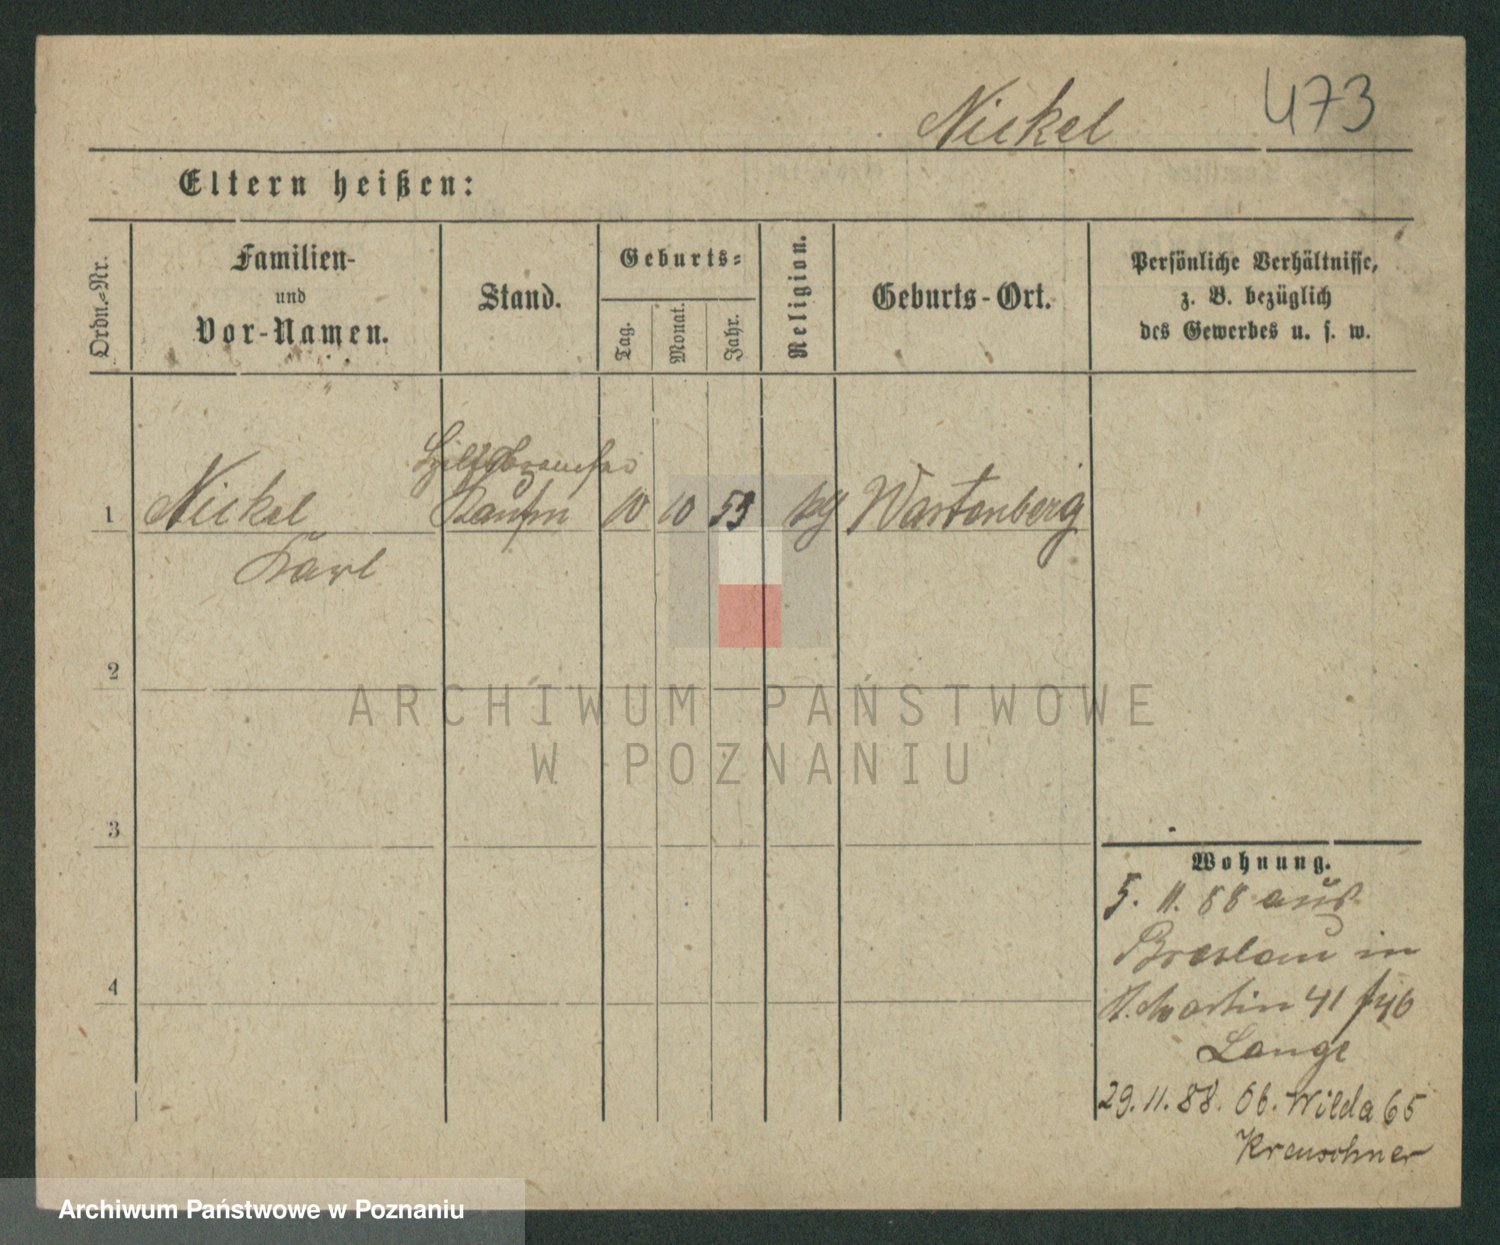 Nickel 473
Eltern heißen:
Ordn.-Nr.
Familien-
und
Vor-Namen.
Stand.
Geburts-
Tag.
Monat.
Jahr.
Religion.
Geburts-Ort.
Persönliche Verhältnisse,
z. B. bezüglich
des Gewerbes u. s. w.
1 Nickel Kaufm 10 10 53 Wartenberg
Karl
2
3
4
Wohnung.
5. 11. 88 aus
Breslau in
St. Martin 41 f 46
Lange
29. 11. 88. Ob. Wilda 65
Kreuschner
ARCHIWUM PAŃSTWOWE
W POZNANIU
Archiwum Państwowe w Poznaniu